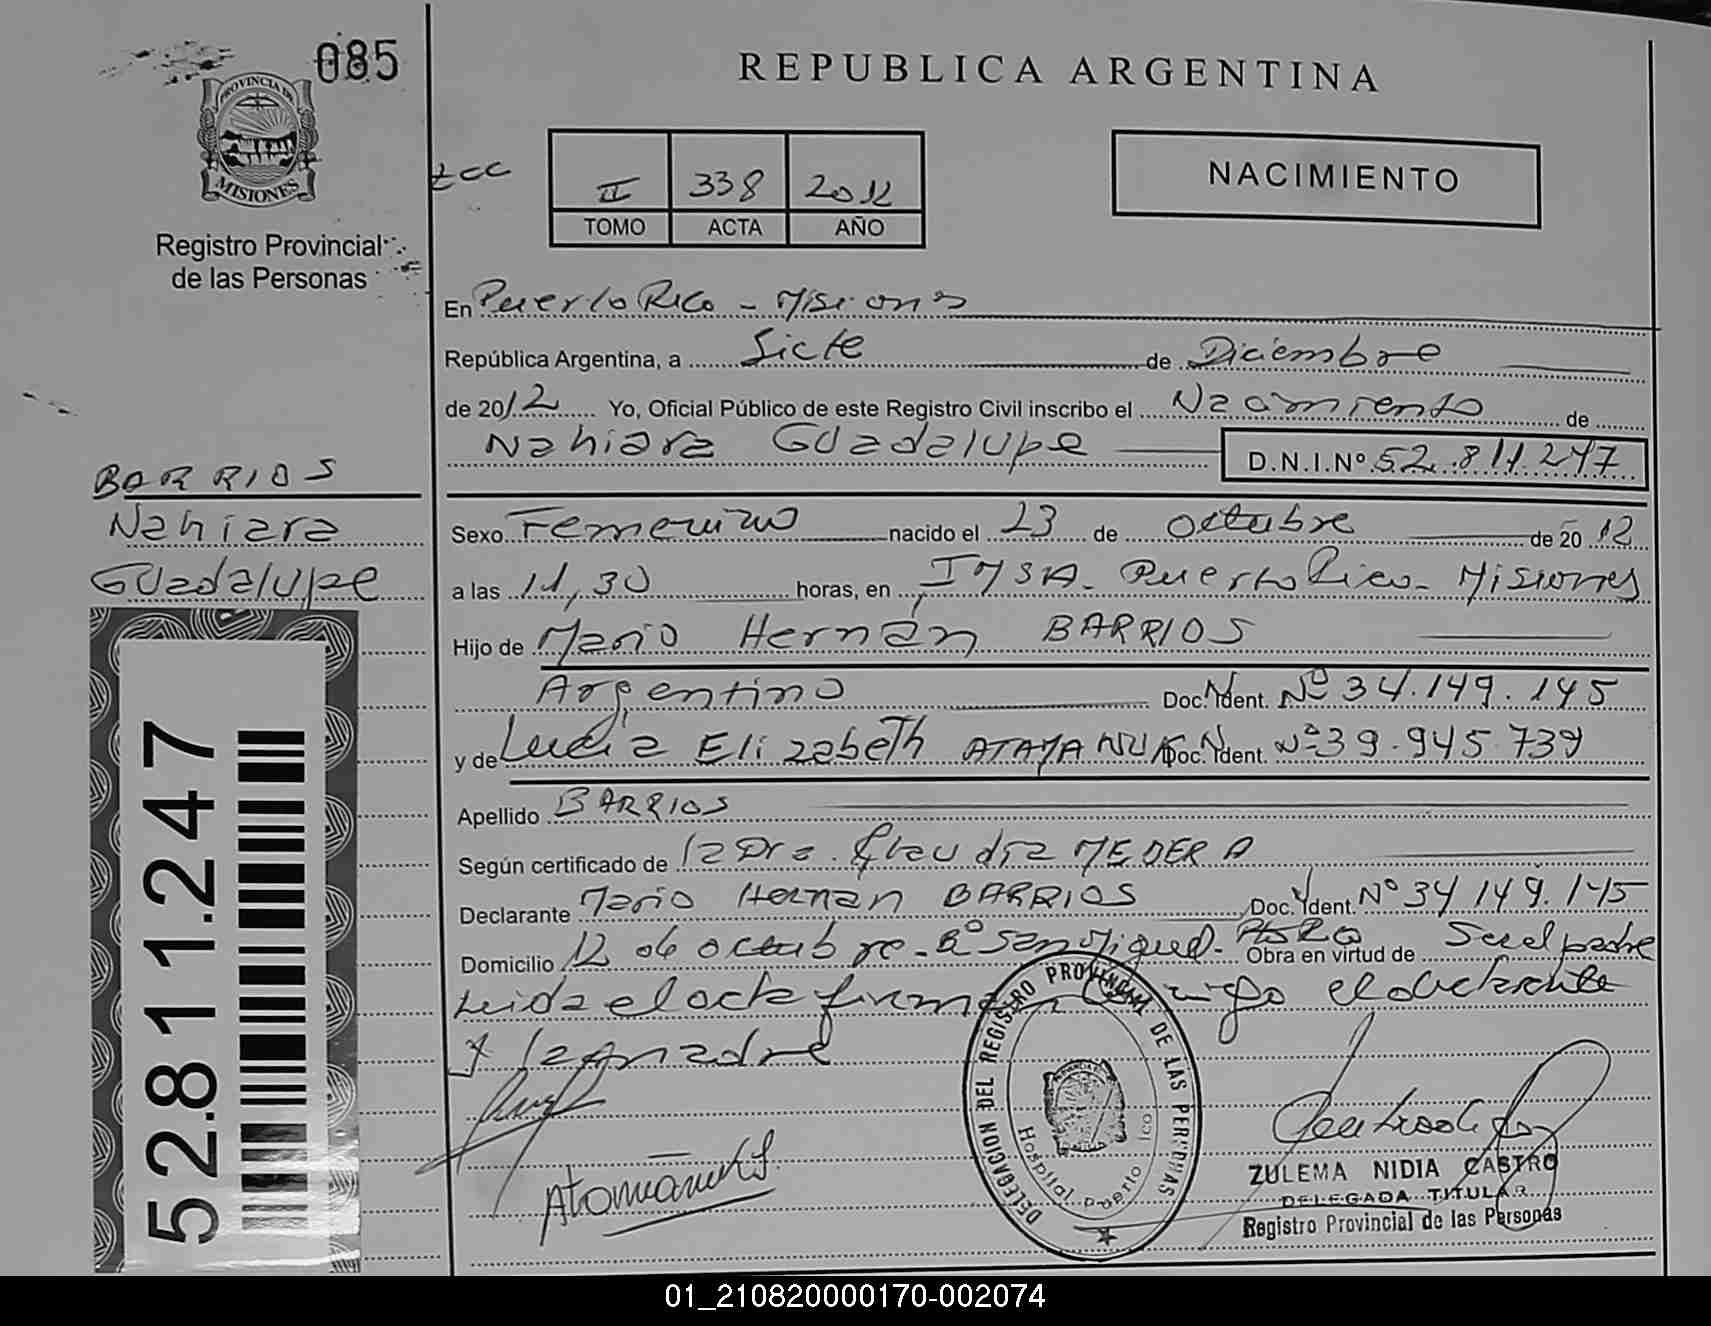 085
PROVINCIA DE
MISIONES
Registro Provincial
de las Personas
REPUBLICA ARGENTINA
II 338 2012
TOMO ACTA AÑO
NACIMIENTO
En Puerto Rico - Misiones
República Argentina, a Siete de Diciembre
de 2012 Yo, Oficial Público de este Registro Civil inscribo el Nacimiento de
Nahiara Guadalupe D.N.I.Nº 52.811.247
BARRIOS
Nahiara
Guadalupe
Sexo Femenino nacido el 23 de octubre de 20 12
a las 11,30 horas, en IMSA - Puerto Rico - Misiones
Hijo de Mario Hernán BARRIOS
Argentino Doc. Ident. Nº 34.149.145
y de Lucía Elizabeth Doc. Ident. Nº 39.945.739
Apellido BARRIOS
Según certificado de la Dra. Claudia MEDERA
Declarante Mario Hernan BARRIOS Doc. Ident. Nº 34.149.145
Domicilio 12 de octubre - Bº San Miguel - Pto Rico Obra en virtud de Ser el padre
Leida el acta firman conmigo el declarante
y la madre
52.811.247
DELEGACION DEL REGISTRO PROVINCIAL DE LAS PERSONAS
Hospital Puerto Rico
ZULEMA NIDIA CASTRO
DELEGADA TITULAR
Registro Provincial de las Personas
01_210820000170-002074